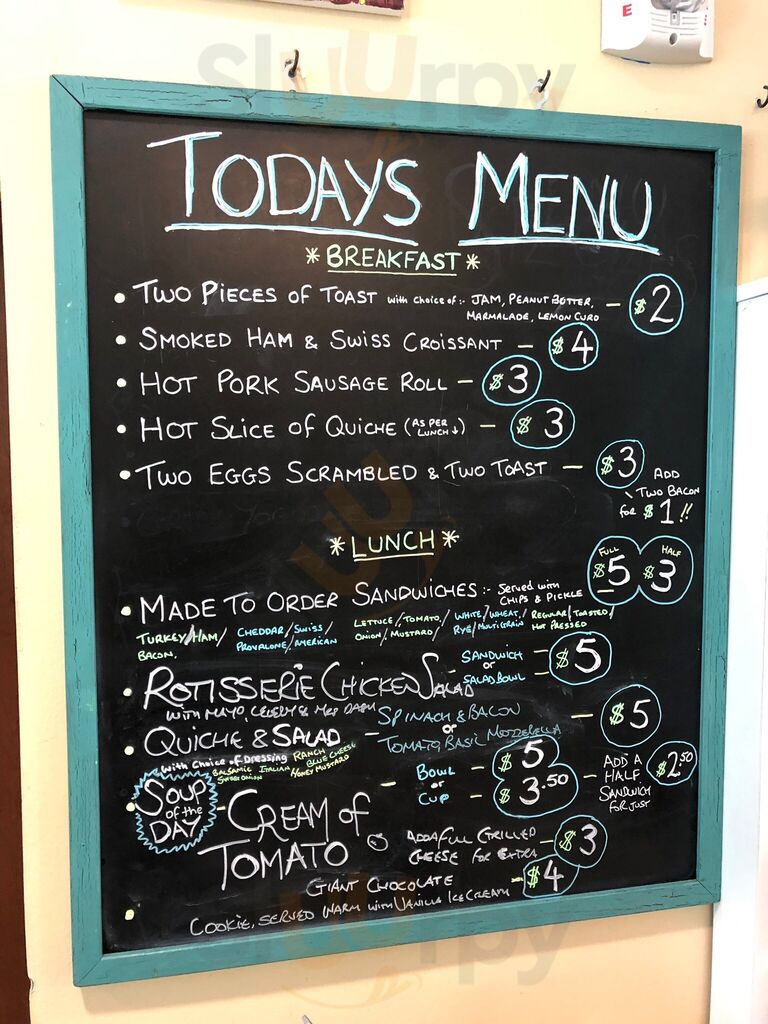 E
Sluurpy
TODAYS MENU
* BREAKFAST *
• TWO PIECES OF TOAST with choice of:- JAM, PEANUT BUTTER, — $2
MARMALADE, LEMON CURD
• SMOKED HAM & SWISS CROISSANT — $4
• HOT PORK SAUSAGE ROLL — $3
• HOT SLICE OF QUICHE (AS PER LUNCH ↓) — $3
• TWO EGGS SCRAMBLED & TWO TOAST — $3
ADD
TWO BACON
for $1!!
* LUNCH *
FULL HALF
$5 $3
• MADE TO ORDER SANDWICHES :- Served with
CHIPS & PICKLE
TURKEY/HAM/ CHEDDAR/SWISS/ LETTUCE/TOMATO/ WHITE/WHEAT/ REGULAR/TOASTED/
BACON. PROVALONE/AMERICAN ONION/MUSTARD/ RYE/MULTIGRAIN HOT PRESSED
• ROTISSERIE CHICKEN SALAD — SANDWICH or SALAD BOWL — $5
WITH MAYO, CELERY & MRS DASH
• QUICHE & SALAD — SPINACH & BACON or TOMATO BASIL MOZZERELLA — $5
With Choice of Dressing RANCH BLUE CHEESE
BALSAMIC ITALIAN HONEY MUSTARD
SWEET ONION
• SOUP of the DAY — CREAM of TOMATO
— BOWL — $5
or
CUP — $3.50
— ADD A HALF SANDWICH FOR JUST $2.50
ADD A FULL GRILLED CHEESE FOR EXTRA — $3
• GIANT CHOCOLATE — $4
COOKIE, SERVED WARM WITH VANILLA ICE CREAM
Sluurpy